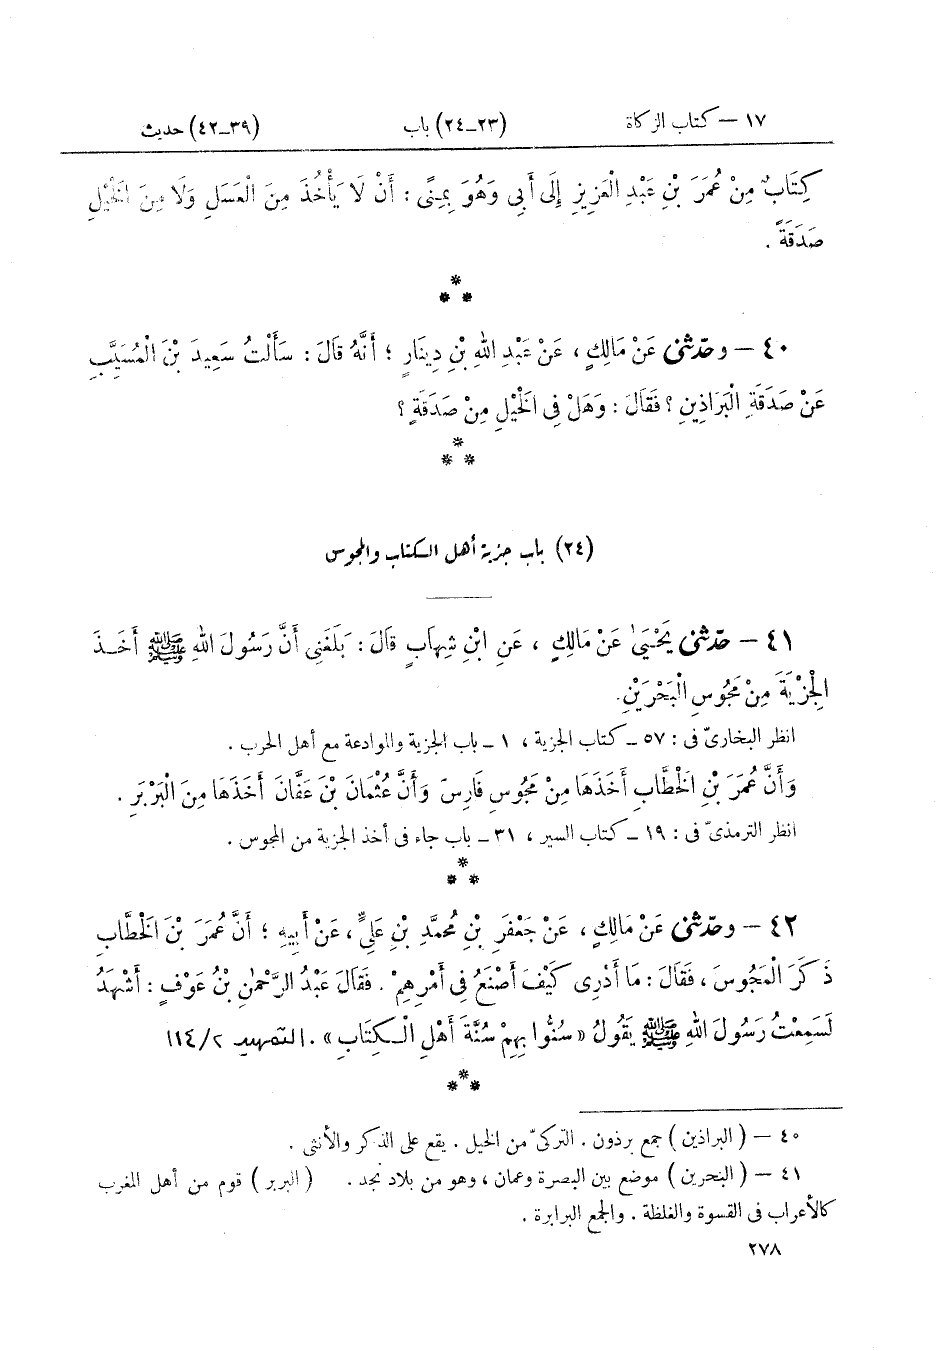 ١٧ — كتاب الزكاة (٢٣ــ٢٤) باب (٣٩ــ٤٢) حديث
كِتَابٌ مِنْ عُمَرَ بْنِ عَبْدِ الْعَزِيزِ إِلَى أَبِي وَهُوَ بِمِنًى : أَنْ لَا يَأْخُذَ مِنَ الْعَسَلِ وَلَا مِنَ الْخَيْلِ
صَدَقَةً .
*
* *
٤٠ — وحدّثنى عَنْ مَالِكٍ ، عَنْ عَبْدِ اللهِ بْنِ دِينَارٍ ؛ أَنَّهُ قَالَ : سَأَلْتُ سَعِيدَ بْنَ الْمُسَيَّبِ
عَنْ صَدَقَةِ الْبَرَاذِينِ ؟ فَقَالَ : وَهَلْ فِى الْخَيْلِ مِنْ صَدَقَةٍ ؟
*
* *
(٢٤) باب جزية أهل الكتاب والمجوس
٤١ — حدّثنى يَحْيَى عَنْ مَالِكٍ ، عَنِ ابْنِ شِهَابٍ قَالَ : بَلَغَنِى أَنَّ رَسُولَ اللهِ ﷺ أَخَذَ
الْجِزْيَةَ مِنْ مَجُوسِ الْبَحْرَيْنِ.
انظر البخارىّ فى : ٥٧ ــ كتاب الجزية ، ١ ــ باب الجزية والموادعة مع أهل الحرب .
وَأَنَّ عُمَرَ بْنَ الْخَطَّابِ أَخَذَهَا مِنْ مَجُوسِ فَارِسَ وَأَنَّ عُثْمَانَ بْنَ عَفَّانَ أَخَذَهَا مِنَ الْبَرْبَرِ .
انظر الترمذىّ فى : ١٩ ــ كتاب السير ، ٣١ ــ باب جاء فى أخذ الجزية من المجوس .
*
* *
٤٢ — وحدّثنى عَنْ مَالِكٍ ، عَنْ جَعْفَرِ بْنِ مُحَمَّدِ بْنِ عَلِيٍّ ، عَنْ أَبِيهِ ؛ أَنَّ عُمَرَ بْنَ الْخَطَّابِ
ذَكَرَ الْمَجُوسَ ، فَقَالَ : مَا أَدْرِى كَيْفَ أَصْنَعُ فِى أَمْرِهِمْ . فَقَالَ عَبْدُ الرَّحْمٰنِ بْنُ عَوْفٍ : أَشْهَدُ
لَسَمِعْتُ رَسُولَ اللهِ ﷺ يَقُولُ « سُنُّوا بِهِمْ سُنَّةَ أَهْلِ الْكِتَابِ » . التمهيد ٢/١١٤
*
* *
٤٠ — ( البراذين ) جمع برذون . التركىّ من الخيل . يقع على الذكر والأنثى .
٤١ — ( البحرين ) موضع بين البصرة وعمان ، وهو من بلاد نجد . ( البربر ) قوم من أهل المغرب
كالأعراب فى القسوة والغلظة . والجمع البرابرة .
٢٧٨